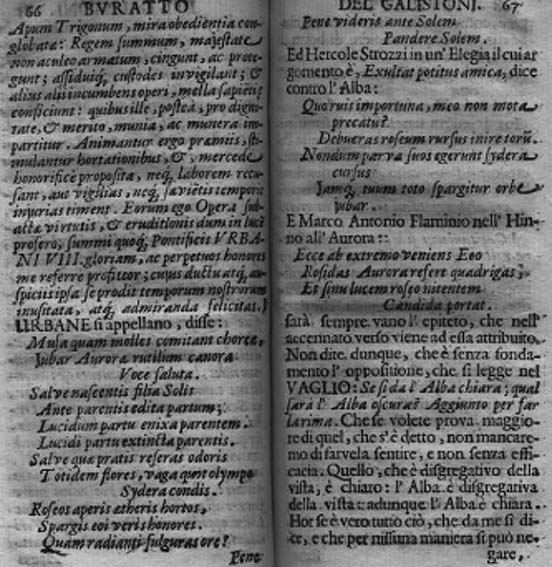 66 BVRATTO
Apum Trigonum, mira obedientia con-
globata: Regem summum, majestate
non aculeo armatum, cingunt, ac prote-
gunt; assiduiq; custodes invigilant; &
alius alii incumbens operi, mella sapienter
conficiunt: quibus ille, postea, pro digni-
tate, & merito, munia, ac munera im-
partitur. Animantur ergo præmiis, sti-
mulantur hortationibus, &, mercede
honorificè proposita, neq; laborem recu-
sant, aut vigilias, neq; sævietis temporis
injurias timent. Eorum ego Opera sub-
acta virtutis, & eruditionis dum in lucē
profero, summi quoq; Pontificis VRBA-
NI VIII. gloriam, ac perpetuos honores
me referre profiteor; cujus ductu atq; au-
spiciis ipsa se prodit temporum nostrorum
inusitata, atq; admiranda felicitas.)
URBANE si appellano, disse:
Musa quam molles comitant choreæ,
Jubar Auroræ rutilum canora
Voce saluta.
Salve nascentis filia Solis
Ante parentis edita partum;
Lucidum partu enixa parentem.
Lucidi partu extincta parentis.
Salve quæ pratis referas odoris
Totidem flores, vaga quot olympo
Sydera condis.
Roseos aperis ætheris hortos,
Spargis eoi veris honores.
Quam radianti fulguras ore?
Pene
DEL GALISTONI. 67
Pene videris ante Solem
Pandere Solem.
Ed Hercole Strozzi in un' Elegia il cui ar
gomento è, Exultat potitus amica, dice
contro l' Alba:
Quo ruis importuna, meo non mota
precatu?
Debueras roseum rursus inire torū.
Nondum parva suos egerunt sydera
cursus
Jamq; tuum toto spargitur orbe
jubar.
E Marco Antonio Flaminio nell' Hin-
no all' Aurora:
Ecce ab extremo veniens Eoo
Rosidas Aurora refert quadrigas;
Et sinu lucem roseo nitentem
Candida portat.
sarà sempre vano l' epiteto, che nell'
accennato verso viene ad essa attributo.
Non dite dunque, che è senza fonda-
mento l' oppositione, che si legge nel
VAGLIO: Se si da l' Alba chiara; qual
sarà l' Alba oscura? Aggiunto per far
la rima. Che se volete prova maggio-
re di quel, che s' è detto, non mancare-
mo di farvela sentire, e non senza effi-
cacia. Quello, che è disgregativo della
vista, è chiaro: l' Alba è disgregativa
della vista: adunque l' Alba è chiara.
Hor se è vero tutto ciò, che da me si di-
ce, e che per nissuna maniera si può ne-
gare,